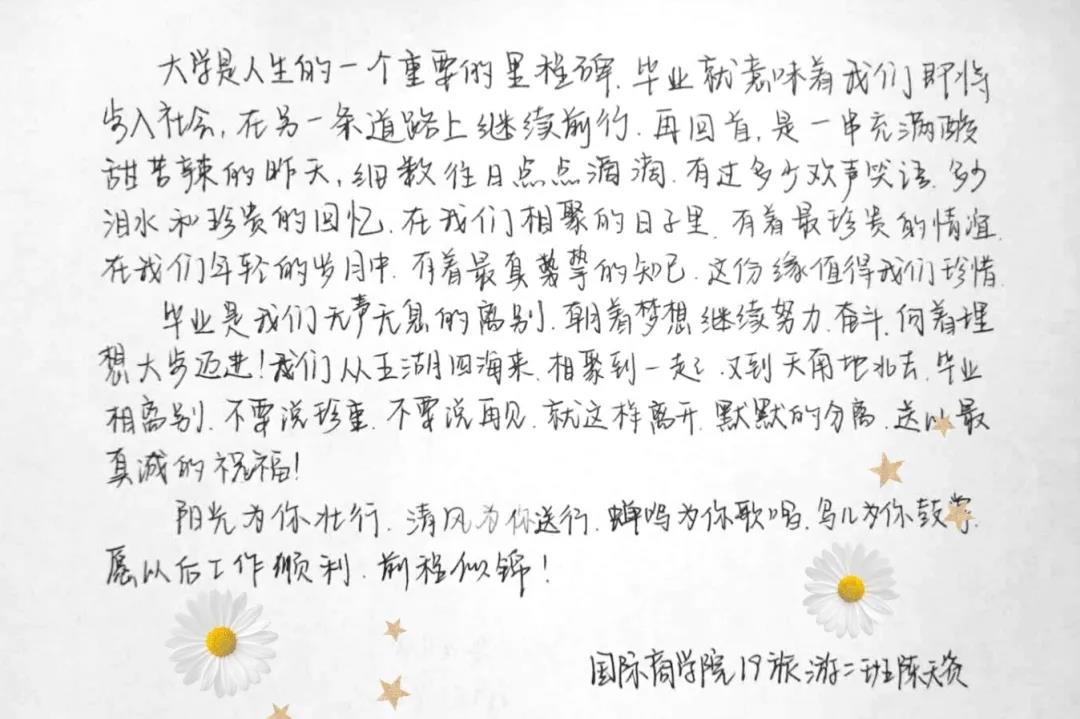 大学是人生的一个重要的里程碑.毕业就意味着我们即将
步入社会,在另一条道路上继续前行.再回首,是一串充满酸
甜苦辣的昨天,细数往日点点滴滴.有过多少欢声笑语.多少
泪水和珍贵的回忆.在我们相聚的日子里.有着最珍贵的情谊.
在我们年轻的岁月中.有着最真挚的知己.这份缘值得我们珍惜.
毕业是我们无声无息的离别.朝着梦想继续努力.奋斗.向着理
想大步迈进!我们从五湖四海来.相聚到一起.又到天南地北去.毕业
相离别.不要说珍重.不要说再见.就这样离开.默默的分离.送以最
真诚的祝福!
阳光为你壮行.清风为你送行.蝉鸣为你歌唱.鸟儿为你鼓掌.
愿以后工作顺利.前程似锦!
国际商学院19旅游二班陈天资